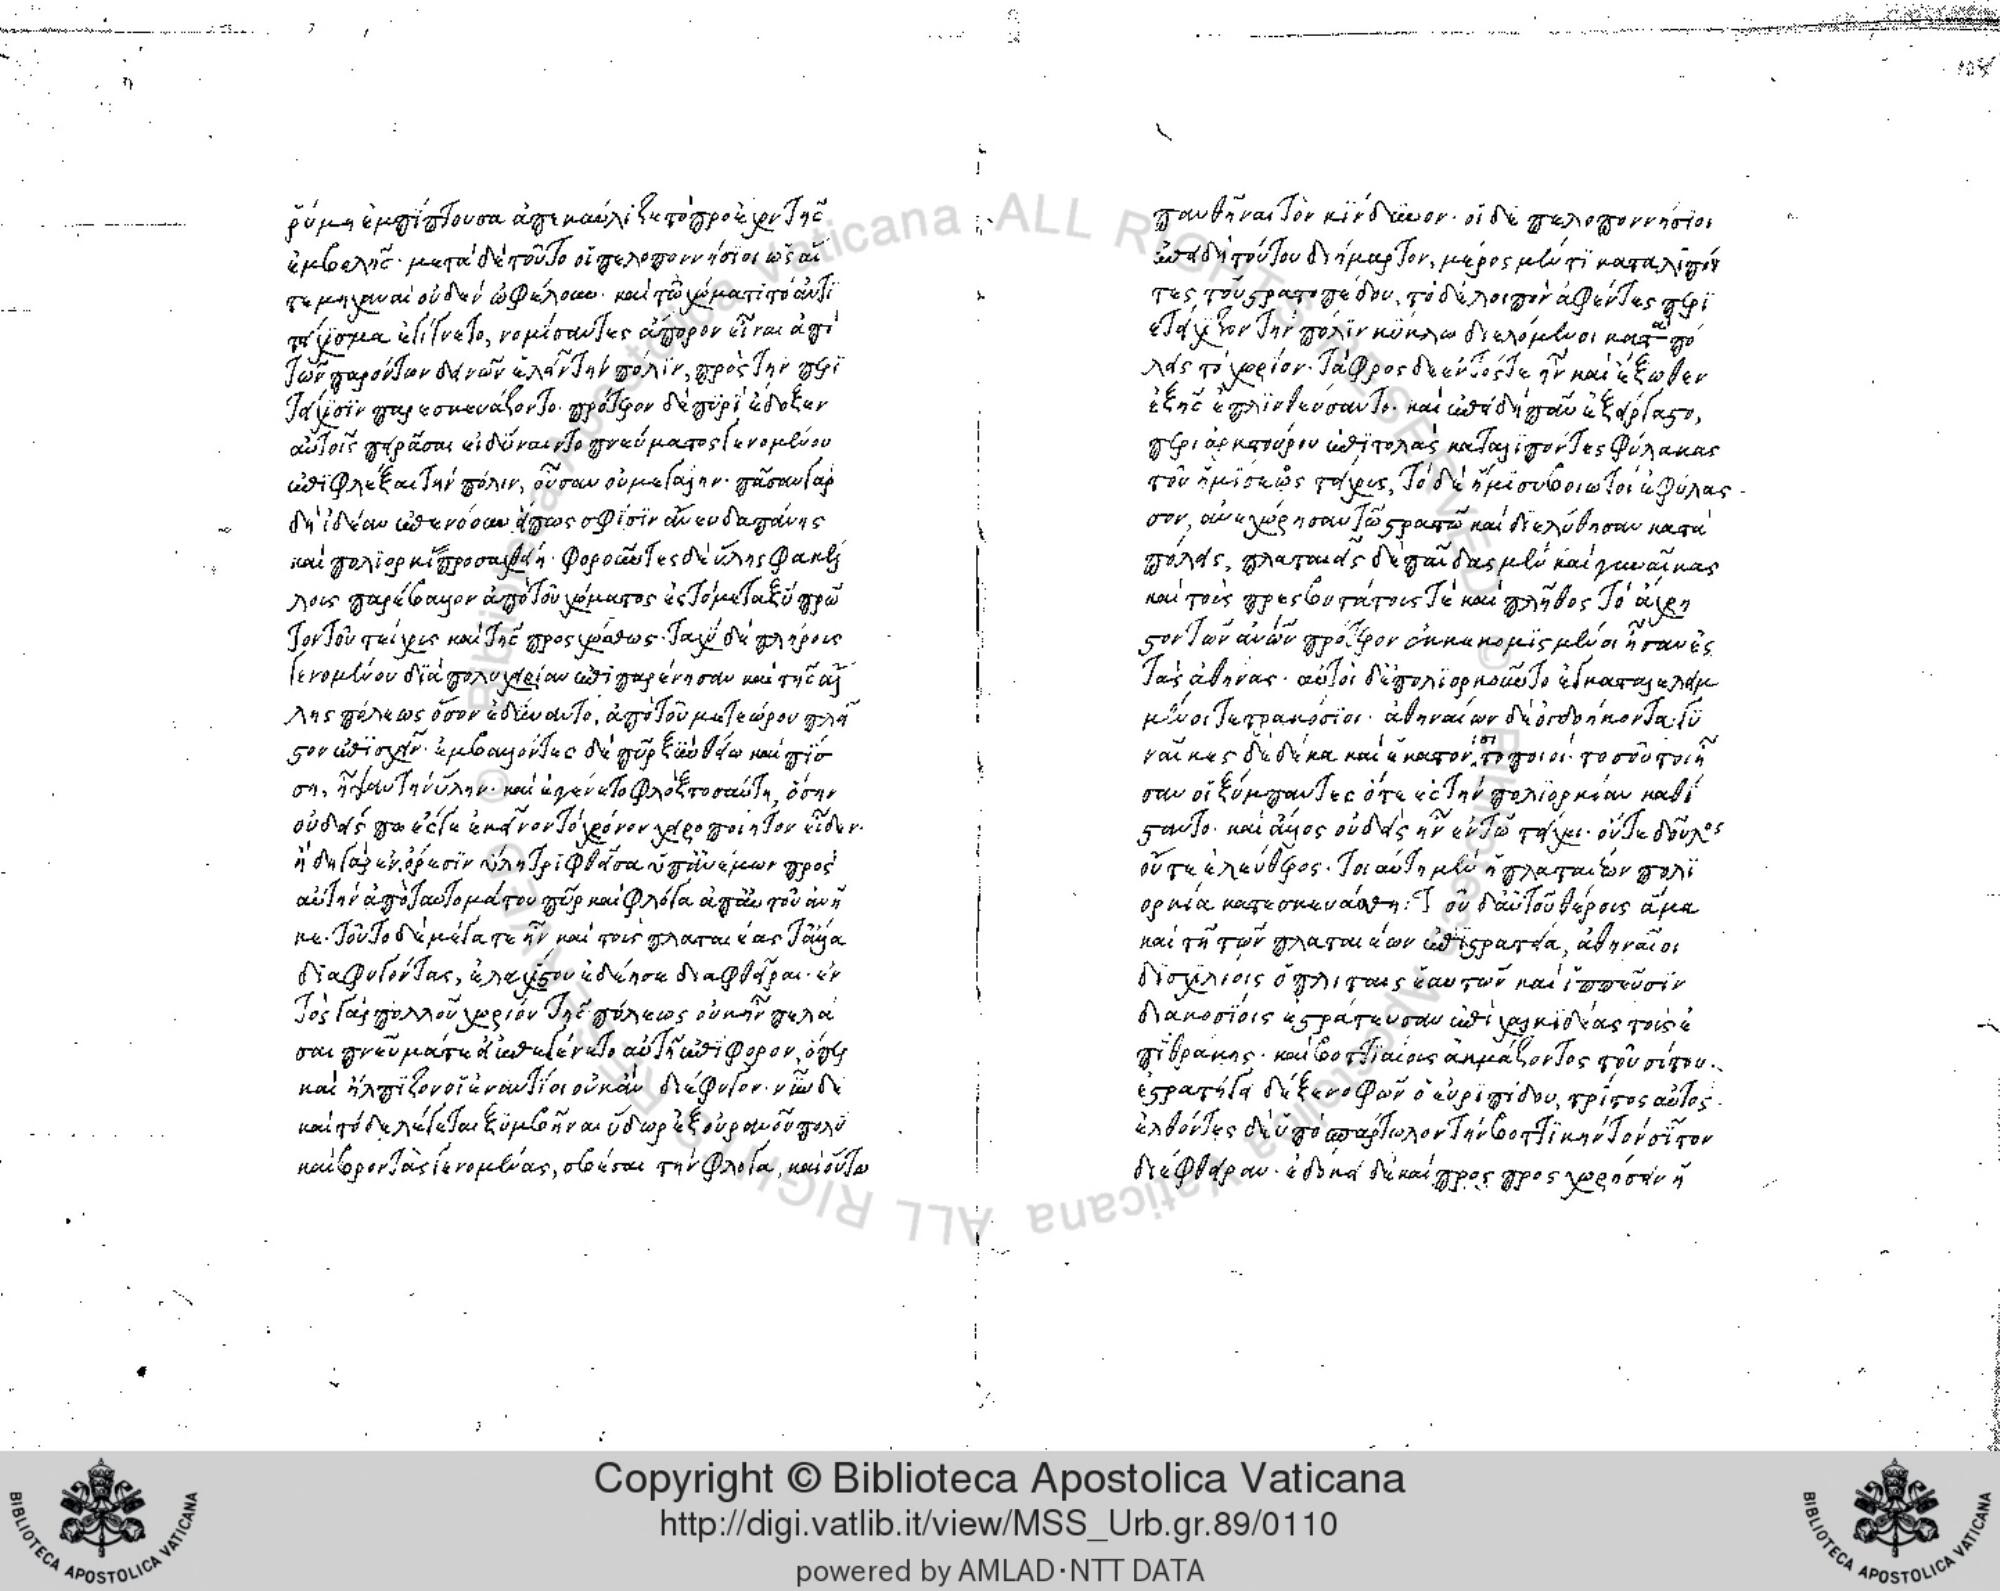 ῥύμη ἐμπίπτουσα ἀπεκαύλιζε τὸ προέχον τῆς
ἐμβολῆς· μετὰ δὲ τοῦτο οἱ πελοποννήσιοι ὡς αἵ
τε μηχαναὶ οὐδὲν ὠφέλουν· καὶ τῶ χώματι τὸ ἀντι
τείχισμα ἐγίγνετο, νομίσαντες ἄπορον εἶναι ἀπὸ
τῶν παρόντων δεινῶν ἑλεῖν τὴν πόλιν, πρὸς τὴν περι
τείχισιν παρεσκευάζοντο· πρότερον δὲ πυρὶ ἔδοξεν
αὐτοῖς πειρᾶσαι εἰ δύναιντο πνεύματος γενομένου
ἐπιφλέξαι τὴν πόλιν, οὖσαν οὐ μεγάλην· πᾶσαν γὰρ
δὴ ἰδέαν ἐπενόουν εἴπως σφίσιν ἄνευ δαπάνης
καὶ πολιορκίας προσαχθείη· φοροῦντες δὲ ὕλης φακέλ
λοις παρέβαλον ἀπὸ τοῦ χώματος ἐς τὸ μεταξὺ πρῶ
τον τοῦ τείχους καὶ τῆς προσχώσεως· ταχὺ δὲ πλήρους
γενομένου διὰ πολυχειρίαν ἐπιπαρένησαν καὶ τῆς ἄλ
λης πόλεως ὅσον ἐδύναντο, ἀπὸ τοῦ μετεώρου πλεῖ
στον ἐπισχεῖν· ἐμβαλόντες δὲ πῦρ ξὺν θείω καὶ πίσ
ση, ἧψαν τὴν ὕλην· καὶ ἐγένετο φλὸξ τοσαύτη, ὅσην
οὐδείς πω ἔς γε ἐκεῖνον τὸ χρόνον χειροποίητον εἶδεν·
ἤδη γὰρ ἐν ὄρεσιν ὕλη τριφθεῖσα ὑπ' ἀνέμων πρὸς
αὐτὴν ἀπὸ ταυτομάτου πῦρ καὶ φλόγα ἀπ' αὐτοῦ ἀνῆ
κε· τοῦτο δὲ μέγα τε ἦν καὶ τοὺς πλαταιέας τἆλλα
διαφυγόντας, ἐλαχίστου ἐδέησε διαφθεῖραι· ἐν
τὸς γὰρ πολλοῦ χωρίον τῆς πόλεως οὐκ ἦν πελά
σαι πνεῦμά τε εἰ ἐπεγένετο αὐτῆ ἐπίφορον, ὅπερ
καὶ ἤλπιζον οἱ ἐναντίοι οὐκ ἂν διέφυγον· νῦν δὲ
καὶ τόδε λέγεται ξυμβῆναι ὕδωρ ἐξ οὐρανοῦ πολὺ
καὶ βροντὰς γενομένας, σβέσαι τὴν φλόγα, καὶ οὕτω
παυθῆναι τὸν κίνδυνον· οἱ δὲ πελοποννήσιοι
ἐπειδὴ τούτου διήμαρτον, μέρος μέν τι καταλιπόν
τες τοῦ στρατοπέδου, τὸ δὲ λοιπὸν ἀφέντες περι
ετείχιζον τὴν πόλιν κύκλω διελόμενοι κατὰ πό
λεις τὸ χωρίον· τάφρος δὲ ἐντός τε ἦν καὶ ἔξωθεν
ἐξ ἧς ἐπλινθεύσαντο· καὶ ἐπειδὴ πᾶν ἐξείργαστο,
περὶ ἀρκτούρου ἐπιτολὰς καταλιπόντες φύλακας
τοῦ ἡμίσεως τείχους, τὸ δὲ ἥμισυ βοιωτοὶ ἐφύλασ
σον, ἀνεχώρησαν τῶ στρατῶ καὶ διελύθησαν κατὰ
πόλεις, πλαταιεῖς δὲ παῖδας μὲν καὶ γυναῖκας
καὶ τοὺς πρεσβυτάτους τὲ καὶ πλῆθος τὸ ἀχρη
στον τῶν ἀνων πρότερον ἐκκεκομισμένοι ἦσαν ἐς
τὰς ἀθήνας· αὐτοὶ δὲ πολιορκοῦντο ἐγκαταλελειμ
μένοι τετρακόσιοι· ἀθηναίων δὲ ὀγδοήκοντα· γυ
ναῖκες δὲ δέκα καὶ ἑκατὸν σιτοποιοί· τοσοῦτοι ἦ
σαν οἱ ξύμπαντες ὅτε ἐς τὴν πολιορκίαν καθί
σταντο· καὶ ἄλλος οὐδεὶς ἦν ἐν τῶ τείχει· οὔτε δοῦλος
οὔτε ἐλεύθερος· τοιαύτη μὲν ἡ πλαταιῶν πολι
ορκία κατεσκευάσθη: τοῦ δ' αὐτοῦ θέρους ἅμα
καὶ τῆ τῶν πλαταιέων ἐπιστρατεία, ἀθηναῖοι
δισχιλίοις ὁπλίταις ἑαυτῶν καὶ ἱππεῦσιν
διακοσίοις ἐστράτευσαν ἐπὶ χαλκιδέας τοὺς ἐ
πὶ θράκης· καὶ βοττιαίους ἀκμάζοντος τοῦ σίτου·
ἐστρατήγει δὲ ξενοφῶν ὁ εὐριπίδου, τρίτος αὐτὸς·
ἐλθόντες δὲ ὑπὸ σπάρτωλον τὴν βοττικὴν τὸν σῖτον
διέφθειραν· ἐδόκει δὲ καὶ προς προς χωρήσειν ἡ